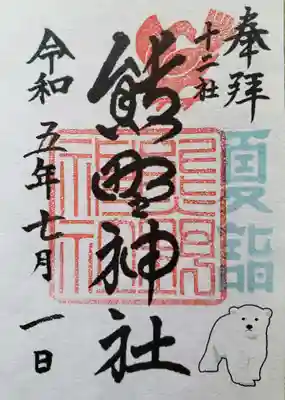 奉拝
十二社
熊野神社
令和五年七月一日
夏詣